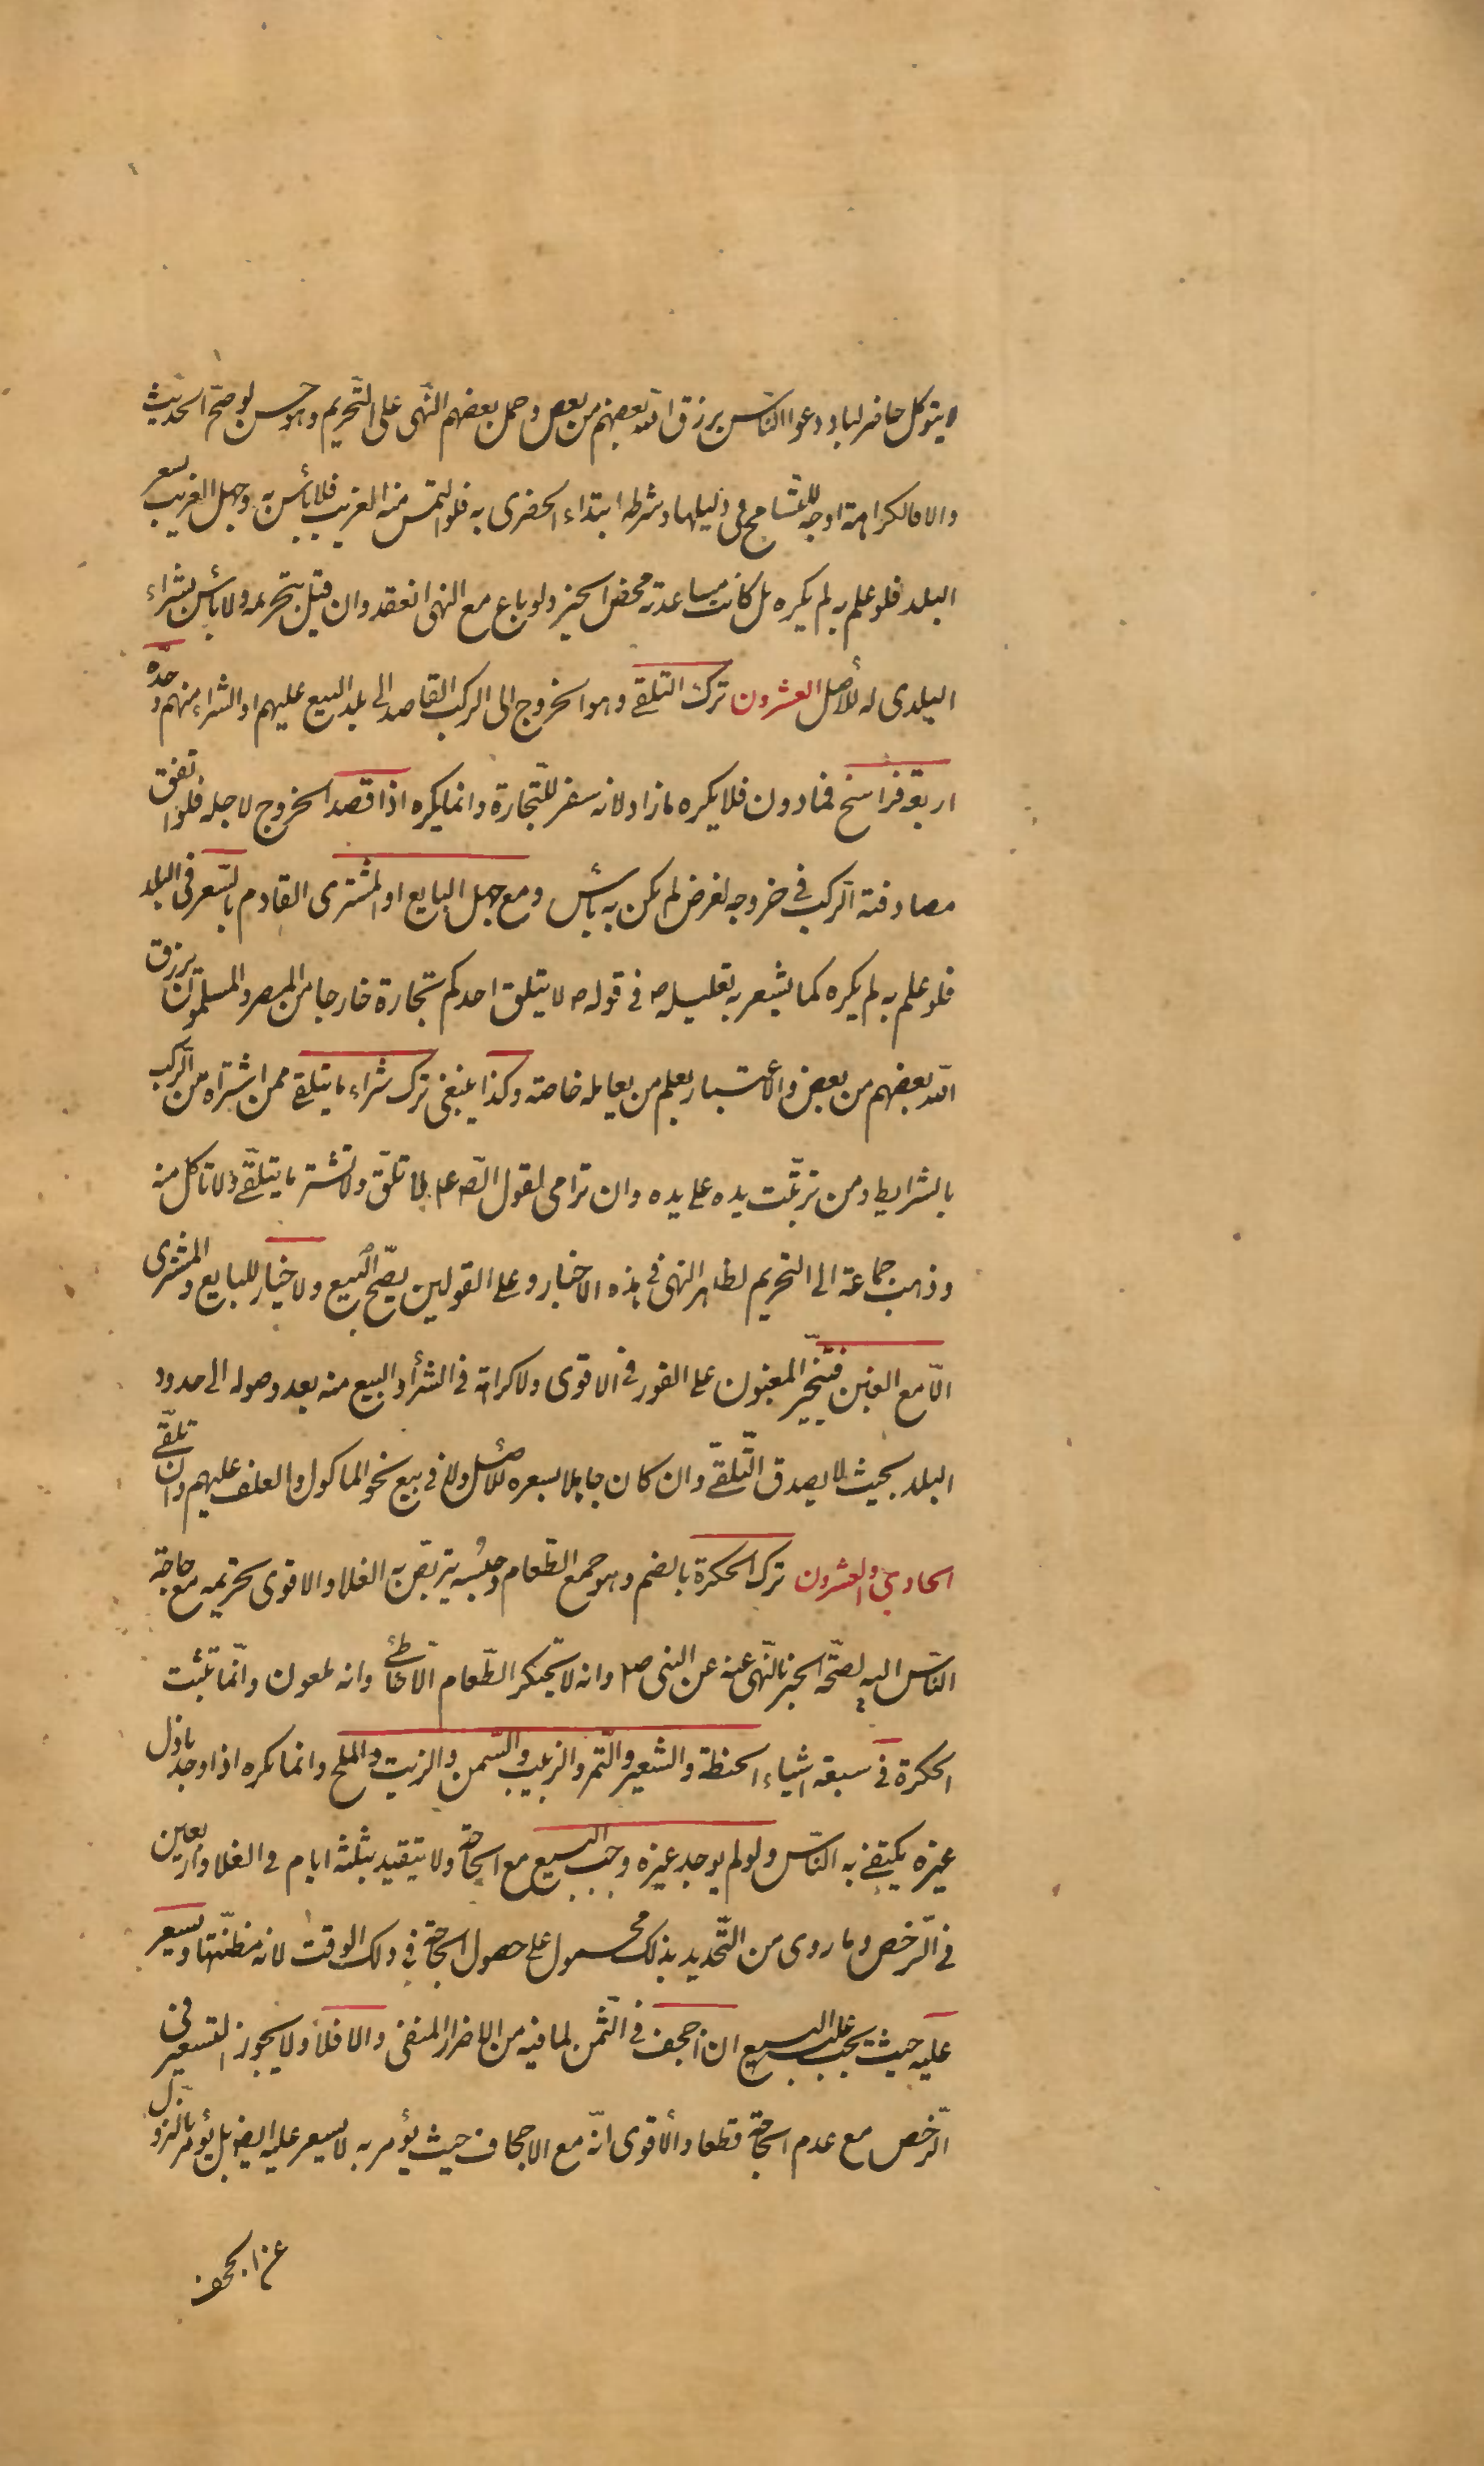 لا يتوكل حاضر لباد دعوا الناس يرزق الله بعضهم من بعض وحمل بعضهم النهى على التحريم وهو حسن لو صح الحديث
والا فالكراهة اوجه للتسامح فى دليلها وشرطه ابتداء الحضرى به فلو التمس منه الغريب فلا بأس به وجهل الغريب بسعر
البلد فلو علم به لم يكره بل كانت مساعدته محض الخير ولو باع مع النهى انعقد وان قيل بتحريمه ولا بأس بشراء
البلدى له للأصل العشرون ترك التلقى وهو الخروج الى الركب القاصد الى بلد للبيع عليهم او الشراء منهم وحده
اربعة فراسخ فما دون فلا يكره ما زاد لانه سفر للتجارة وانما يكره اذا قصد الخروج لاجله فلو اتفق
مصادفته الركب فى خروجه لغرض لم يكن به بأس ومع جهل البايع او المشترى القادم بالسعر فى البلد
فلو علم به لم يكره كما يشعر به تعليله ص فى قوله ص لا يتلق احدكم تجارة خارجا من المصر والمسلمون يرزق
الله بعضهم من بعض والاعتبار بعلم من يعامله خاصة وكذا ينبغى ترك شراء ما يتلقى ممن اشتراه من الركب
بالشرايط ومن ترتبت يده على يده وان ترامى لقول الص عم لا تلق ولا تشتر ما يتلقى ولا تاكل منه
وذهب جماعة الى التحريم لظاهر النهى فى هذه الاخبار وعلى القولين يصح البيع ولا خيار للبايع والمشترى
الا مع الغبن فيتخير المغبون على الفور فى الاقوى ولا كراهة فى الشراء والبيع منه بعد وصوله الى حدود
البلد بحيث لا يصدق التلقى وان كان جاهلا بسعره للأصل ولا فى بيع نحو الماكول والعلف عليهم وان تلقى
الحادى والعشرون ترك الحكرة بالضم وهو جمع الطعام وحبسه يتربص به الغلاء والاقوى تحريمه مع حاجة
الناس اليه لصحة الخبر بالنهى عنه عن النبى ص وانه لا يحتكر الطعام الا خاطئ وانه ملعون وانما تثبت
الحكرة فى سبعة اشياء الحنطة والشعير والتمر والزبيب والسمن والزيت والملح وانما يكره اذا وجد باذل
غيره يكتفى به الناس ولو لم يوجد غيره وجب البيع مع الحاجة ولا يتقيد بثلثة ايام فى الغلاء واربعين
فى الرخص وما روى من التحديد بذلك محمول على حصول الحاجة فى ذلك الوقت لانه مظنتها ويسعر
عليه حيث يجب عليه البيع ان اجحف فى الثمن لما فيه من الاضرار المنفى والا فلا ولا يجوز التسعير فى
الرخص مع عدم الحاجة قطعا والأقوى انه مع الاجحاف حيث يؤمر به لا يسعر عليه ايضا بل يؤمر بالنزول
عن المجحف